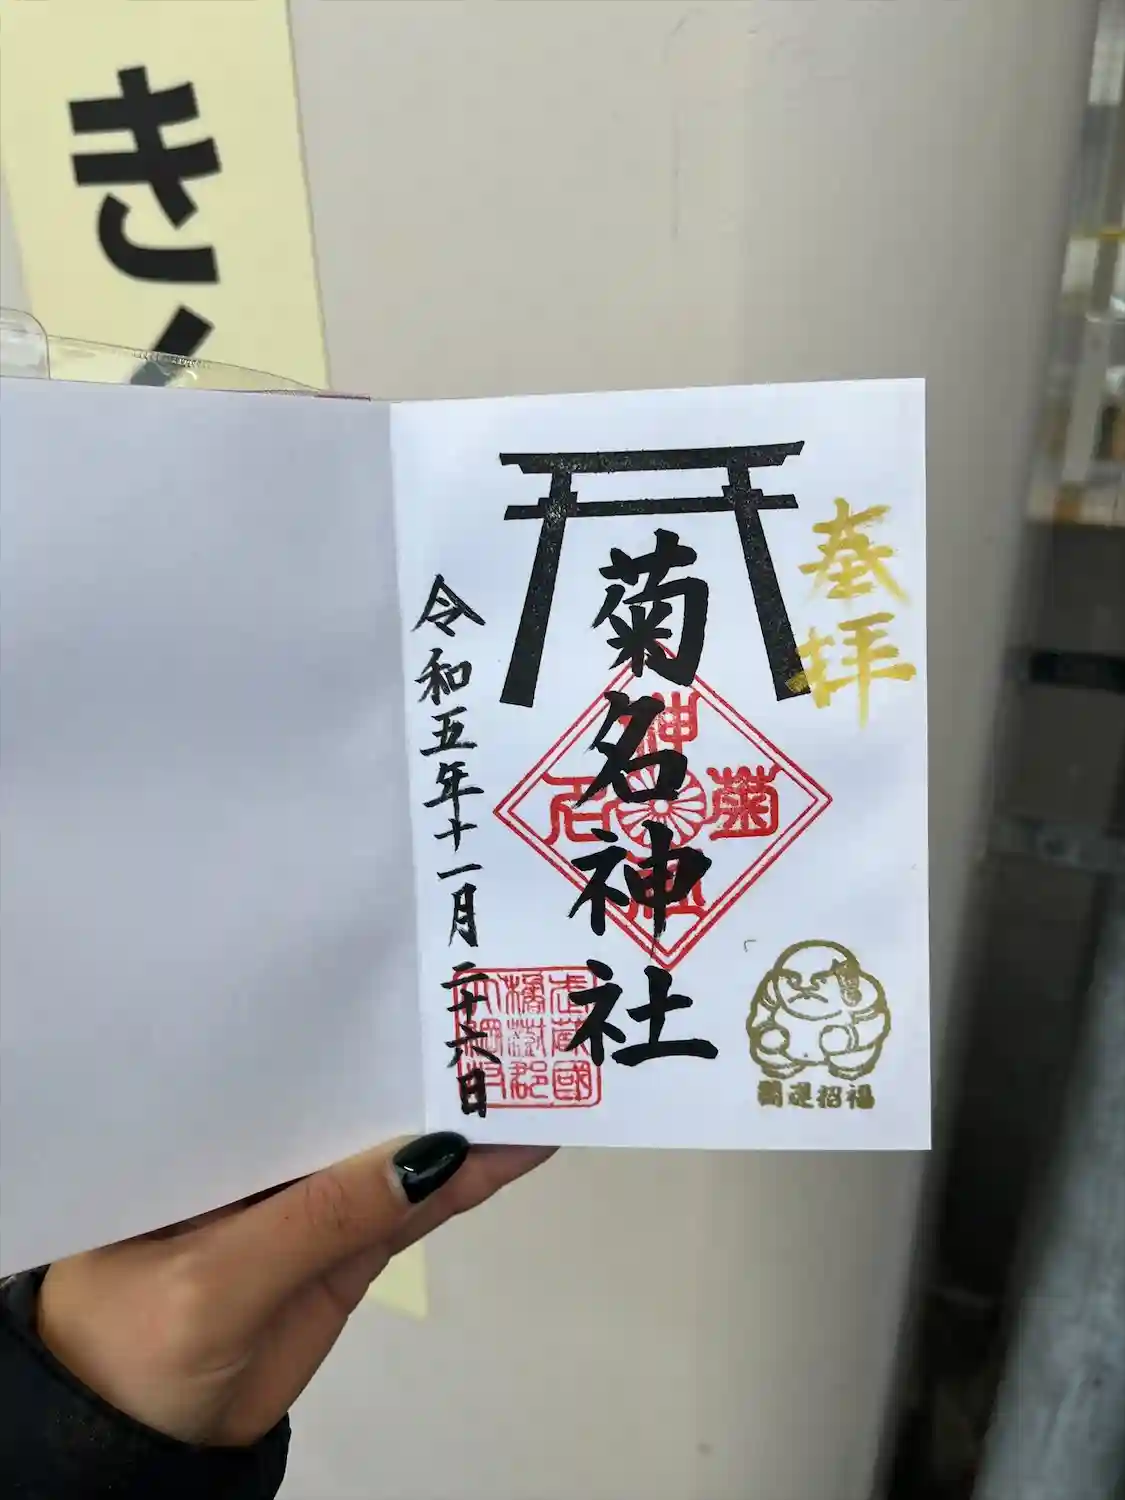 きく
奉拝
菊名神社
令和五年十一月二十六日
菊名神社
武蔵國
橘樹郡
大綱村
開運招福